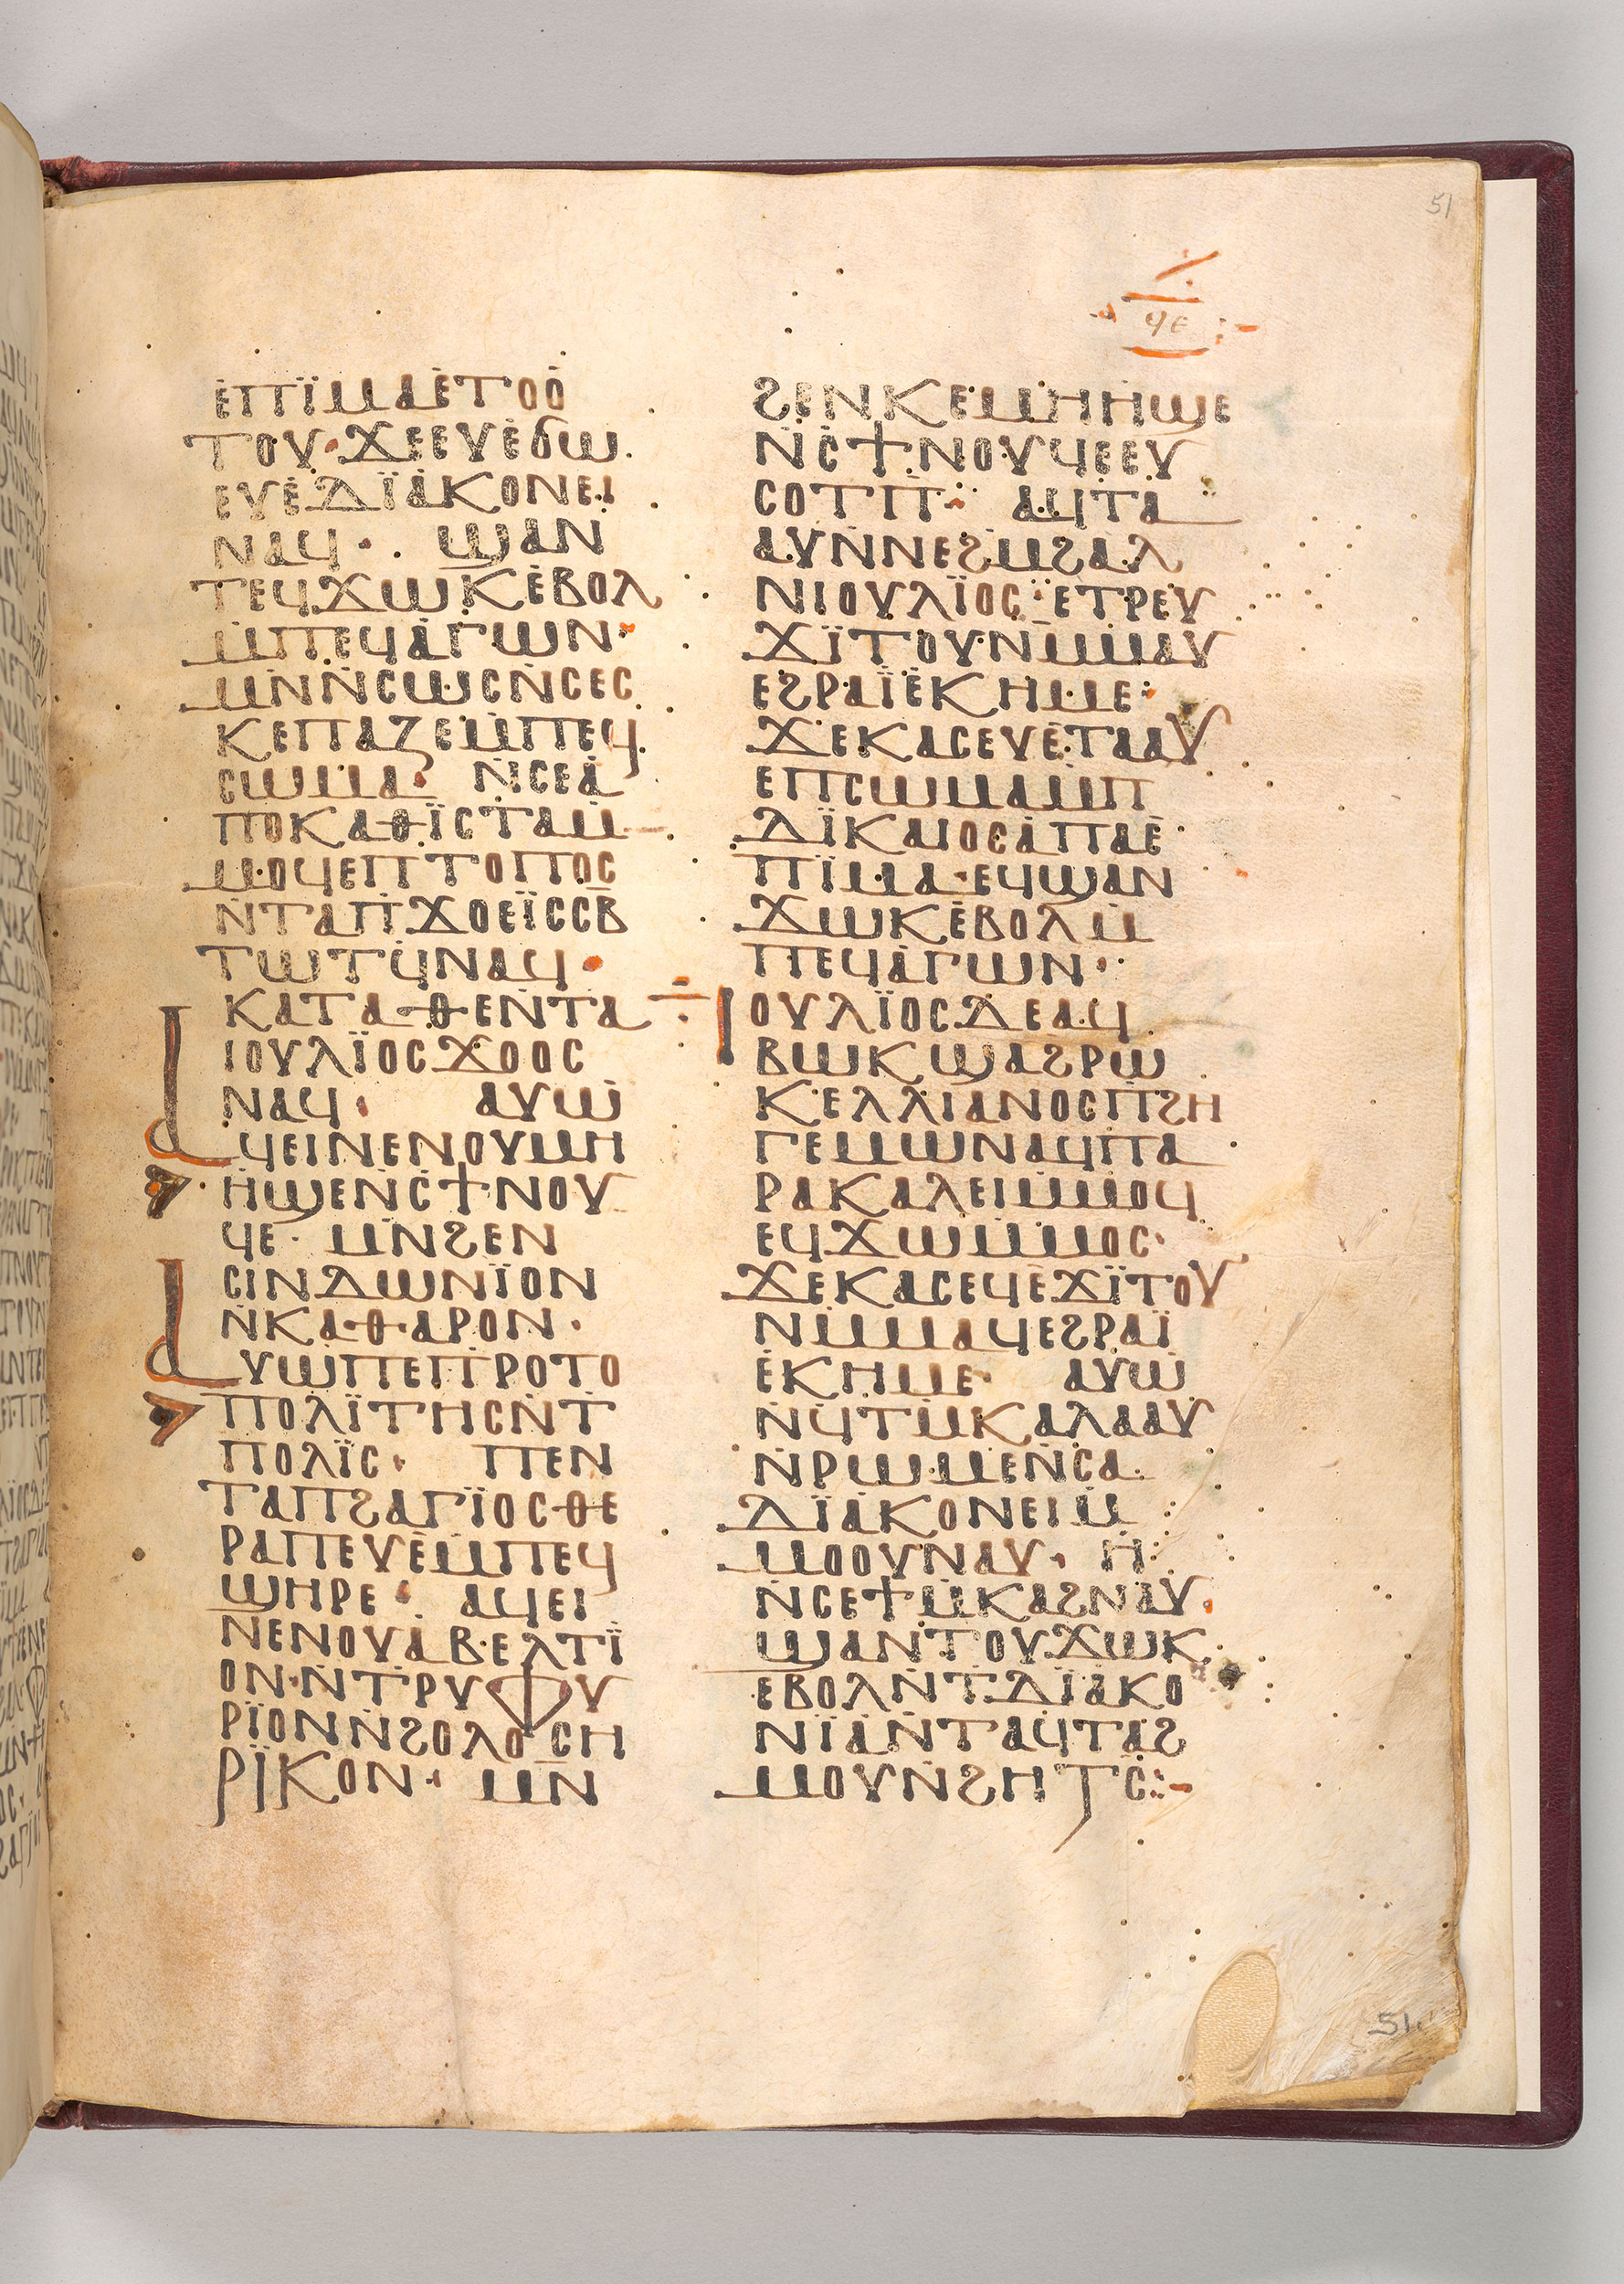 51
ϥⲉ
ⲉⲡⲓ̈ⲙⲁⲉⲧⲟⲟ
ⲧⲟⲩ· ϫⲉⲉⲩⲉϭⲱ
ⲉⲩⲉⲇⲓ̈ⲁⲕⲟⲛⲉⲓ
ⲛⲁϥ· ϣⲁⲛ
ⲧⲉϥϫⲱⲕⲉⲃⲟⲗ
ⲙⲡⲉϥⲁⲅⲱⲛ·
ⲙⲛⲛⲥⲱⲥⲛⲥⲉⲥ
ⲕⲉⲡⲁⲍⲉⲙⲡⲉϥ
ⲥⲱⲙⲁ· ⲛⲥⲉⲁ
ⲡⲟⲕⲁⲑⲓ̈ⲥⲧⲁⲙ
ⲙⲟϥⲉⲡⲧⲟⲡⲟⲥ
ⲛⲧⲁⲡϫⲟⲉⲓ̈ⲥⲥⲃ̅
ⲧⲱⲧϥⲛⲁϥ·
ⲕⲁⲧⲁⲑⲉⲛⲧⲁ
ⲓⲟⲩⲗⲓ̈ⲟⲥϫⲟⲟⲥ
ⲛⲁϥ· ⲁⲩⲱ
ⲁϥⲉⲓⲛⲉⲛⲟⲩⲙⲏ
ⲏϣⲉⲛⲥϯⲛⲟⲩ
ϥⲉ· ⲙⲛϩⲉⲛ
ⲥⲓⲛⲇⲱⲛⲓ̈ⲟⲛ
ⲛⲕⲁⲑⲁⲣⲟⲛ·
ⲁⲩⲱⲡⲉⲡⲣⲟⲧⲟ
ⲡⲟⲗⲓ̈ⲧⲏⲥⲛⲧ
ⲡⲟⲗⲓ̈ⲥ· ⲡⲉⲛ
ⲧⲁⲡϩⲁⲅⲓ̈ⲟⲥⲑⲉ
ⲣⲁⲡⲉⲩⲉⲙⲡⲉϥ
ϣⲏⲣⲉ· ⲁϥⲉⲓ
ⲛⲉⲛⲟⲩⲁⲃⲉⲗⲧⲓ̈
ⲟⲛⲛⲧⲣⲩⲫⲩ
ⲣⲓ̈ⲟⲛⲛϩⲟⲗⲟⲥⲏ
ⲣⲓ̈ⲕⲟⲛ· ⲙⲛ̅
ϩⲉⲛⲕⲉⲙⲏⲏϣⲉ
ⲛⲥϯⲛⲟⲩϥⲉⲉⲩ
ⲥⲟⲧⲡ· ⲁϥⲧⲁ
ⲁⲩⲛⲛⲉϩⲙϩⲁⲗ
ⲛⲓⲟⲩⲗⲓ̈ⲟⲥ· ⲉⲧⲣⲉⲩ
ϫⲓ̈ⲧⲟⲩⲛⲙ̅ⲙⲁⲩ
ⲉϩⲣⲁⲓ̈ⲉⲕⲏⲙⲉ:
ϫⲉⲕⲁⲥⲉⲩⲉⲧⲁⲁⲩ
ⲉⲡⲥⲱⲙⲁⲙⲡ
ⲇⲓ̈ⲕⲁⲓⲟⲥⲁⲡⲁⲉ
ⲡⲓⲙⲁ· ⲉϥϣⲁⲛ
ϫⲱⲕⲉⲃⲟⲗⲙ
ⲡⲉϥⲁⲅⲱⲛ·
ⲓⲟⲩⲗⲓ̈ⲟⲥⲇⲉⲁϥ
ⲃⲱⲕϣⲁϩⲣⲱ
ⲕⲉⲗⲗⲓⲁⲛⲟⲥⲡϩⲏ
ⲅⲉⲙⲱⲛⲁϥⲡⲁ
ⲣⲁⲕⲁⲗⲉⲓⲙⲙⲟϥ
ⲉϥϫⲱⲙⲙⲟⲥ·
ϫⲉⲕⲁⲥⲉϥⲉϫⲓ̈ⲧⲟⲩ
ⲛⲙⲙⲁϥⲉϩⲣⲁⲓ̈
ⲉⲕⲏⲙⲉ· ⲁⲩⲱ
ⲛϥⲧⲙⲕⲁⲗⲁⲁⲩ
ⲛⲣⲱⲙⲉⲛⲥⲁ
ⲇⲓ̈ⲁⲕⲟⲛⲉⲓⲙ
ⲙⲟⲟⲩⲛⲁⲩ· ⲏ
ⲛⲥⲉϯⲙⲕⲁϩⲛⲁⲩ·
ϣⲁⲛⲧⲟⲩϫⲱⲕ
ⲉⲃⲟⲗⲛⲧⲇⲓ̈ⲁⲕⲟ
ⲛⲓ̈ⲁⲛⲧⲁϥⲧⲁϩ
ⲙⲟⲩⲛϩⲏⲧⲥ:-
51